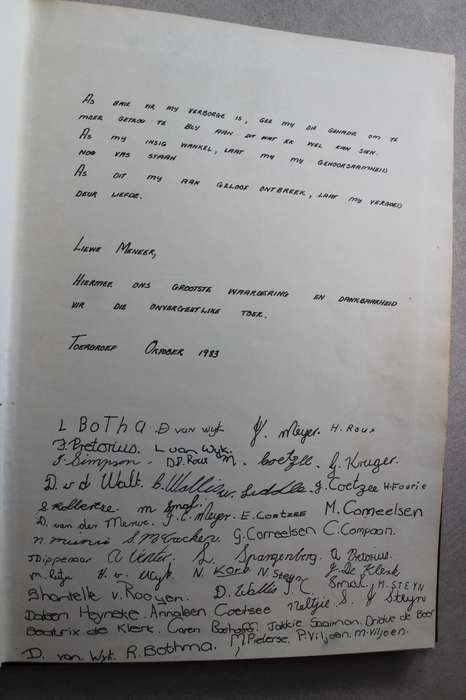 AS BAIE VIR MY VERBORGE IS, GEE MY DIE GENADE OM TE
MEER GETROU TE BLY AAN DIT WAT EK WEL KAN SIEN.
AS MY INSIG WANKEL, LAAT MY MY GEHOORSAAMHEID
NOG VAS STAAN
AS DIT MY AAN GELOOF ONTBREEK, LAAT MY VERGOED
DEUR LIEFDE.
LIEWE MENEER,
HIERMEE ONS GROOTSTE WAARDERING EN DANKBAARHEID
VIR DIE ONVERGEETLIKE TOER.
TOERGROEP OKTOBER 1983
L BOTHA D van Wyk Y. Meyer. H. Roux
J. Pretorius. L van Wyk. M. Coetzee G. Kruger.
J. Simpson. D.P. Roux
D. v d Walt. J. Coetzee H. Fourie
M. Corneelsen
D. van der Merwe. J. C. Meyer. E. Coetzee
G. Corneelsen C. Compaan.
J Dippenaar A Venter. L. Spangenberg. A Pretorius.
N. Korb N. Steyn J. De Klerk
Shantelle v. Rooyen. D. Wallis J. C Smal. M. STEYN
Daleen Heyneke. Annaleen Coetsee Neltjie S. Y Steyn
Beatrix de Klerk. Caren Boshoff. Jakkie Saaiman. Drickie de Beer
D. van Wyk. R. Bothma. M Pieterse. P. Viljoen. M. Viljoen.